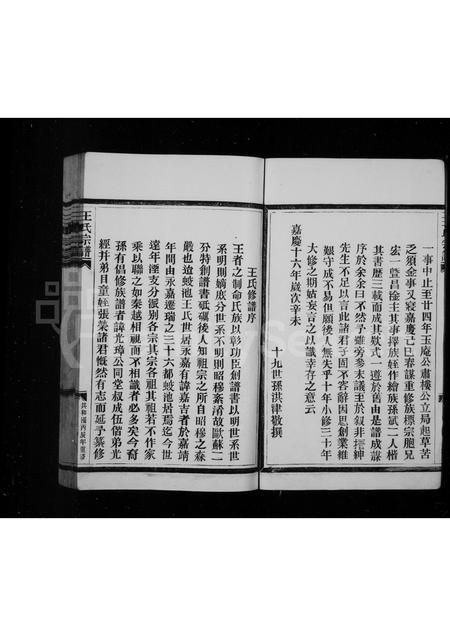 一事中止至廿四年玉庵公肅樓公立局起草苦
乏須金事又寢嘉慶己巳春謀重修族標宗胞兄
宏一暨昌棆主其事擇族姪作繪族孫斌二人楷
其書歷三載而成其欵式一遵於舊由是譜成謀
序於余余曰不然予雖旁參末議至於叙非搢紳
先生不足以言此諸君子固不容辭因思創業維
艱守成不易但願後人無失乎十年小修三十年
大修之期姑妄言之以識幸存之意云
十九世孫洪津敬撰
嘉慶十六年歲次辛未
王氏修譜序
王者之制命氏族以彰功臣創譜書以明世系世
系明則嫡底分世系不明則昭穆紊淆故歐蘇二
氏特創譜書砥礪後人知祖宗之所自昭穆之森
嚴也迨蚊池王氏世居永嘉有諱嘉吉者於嘉靖
年間由永嘉遷瑞之三十六都蚊池居焉迄今世
遠年湮支分派別各宗其宗各祖其祖若不作家
乘以聯之如秦越相視而不相識者必多矣今裔
孫有倡修族譜者諱光璋公同堂叔成伍偕弟光
經并弟目童姪張榮諸君慨然有志而延予纂修
王氏宗譜